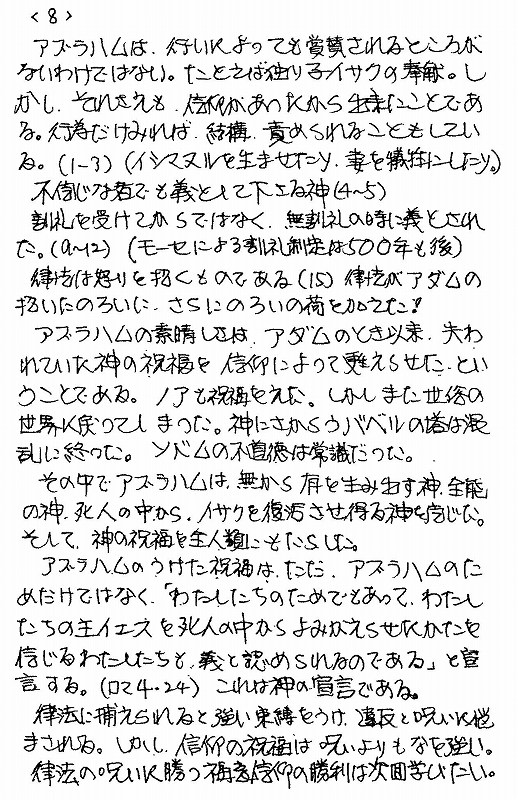 <8>
アブラハムは、行いによっても賞賛されるところが
ないわけではない。たとえば独り子イサクの奉献。し
かし、それさえも、信仰があったから出来たことであ
る。行為だけみれば、結構、責められることもしてい
る。(1-3) (イシマエルを生ませたり、妻を犠牲にしたり。)
不信心な者でも義として下さる神(4~5)
割礼を受けてからではなく、無割礼の時に義とされ
た。(9~12) (モーセによる割礼制定は500年も後)
律法は怒りを招くものである(15) 律法がアダムの
招いたのろいに、さらにのろいの荷を加えた!
アブラハムの素晴しさは、アダムのとき以来、失わ
れていた神の祝福を信仰によって甦えらせた、とい
うことである。ノアも祝福をえた。しかしまた世俗の
世界に戻ってしまった。神にさからうバベルの塔は混
乱に終った。ソドムの不道徳は常識だった。
その中でアブラハムは、無から有を生み出す神、全能
の神、死人の中から、イサクを復活させ得る神を信じた。
そして、神の祝福を全人類にもたらした。
アブラハムのうけた祝福は、ただ、アブラハムのた
めだけではなく、「わたしたちのためでもあって、わたし
たちの主イエスを死人の中からよみがえらせたかたを
信じるわたしたちも、義と認められるのである」と宣
言する。(ロマ4・24) これは神の宣言である。
律法に捕えられると強い束縛をうけ、違反と呪いに悩
まされる。しかし、信仰の祝福は呪いよりもなを強い。
律法の呪いに勝つ福音信仰の勝利は次回学びたい。